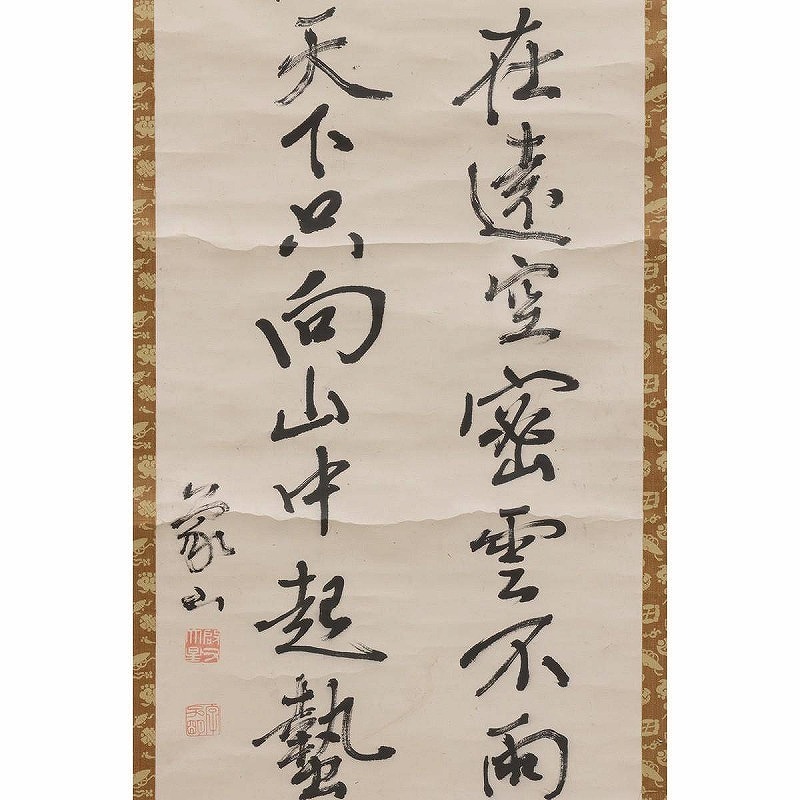 在遠空密雲不雨
天下只向山中起蟄
蒙山